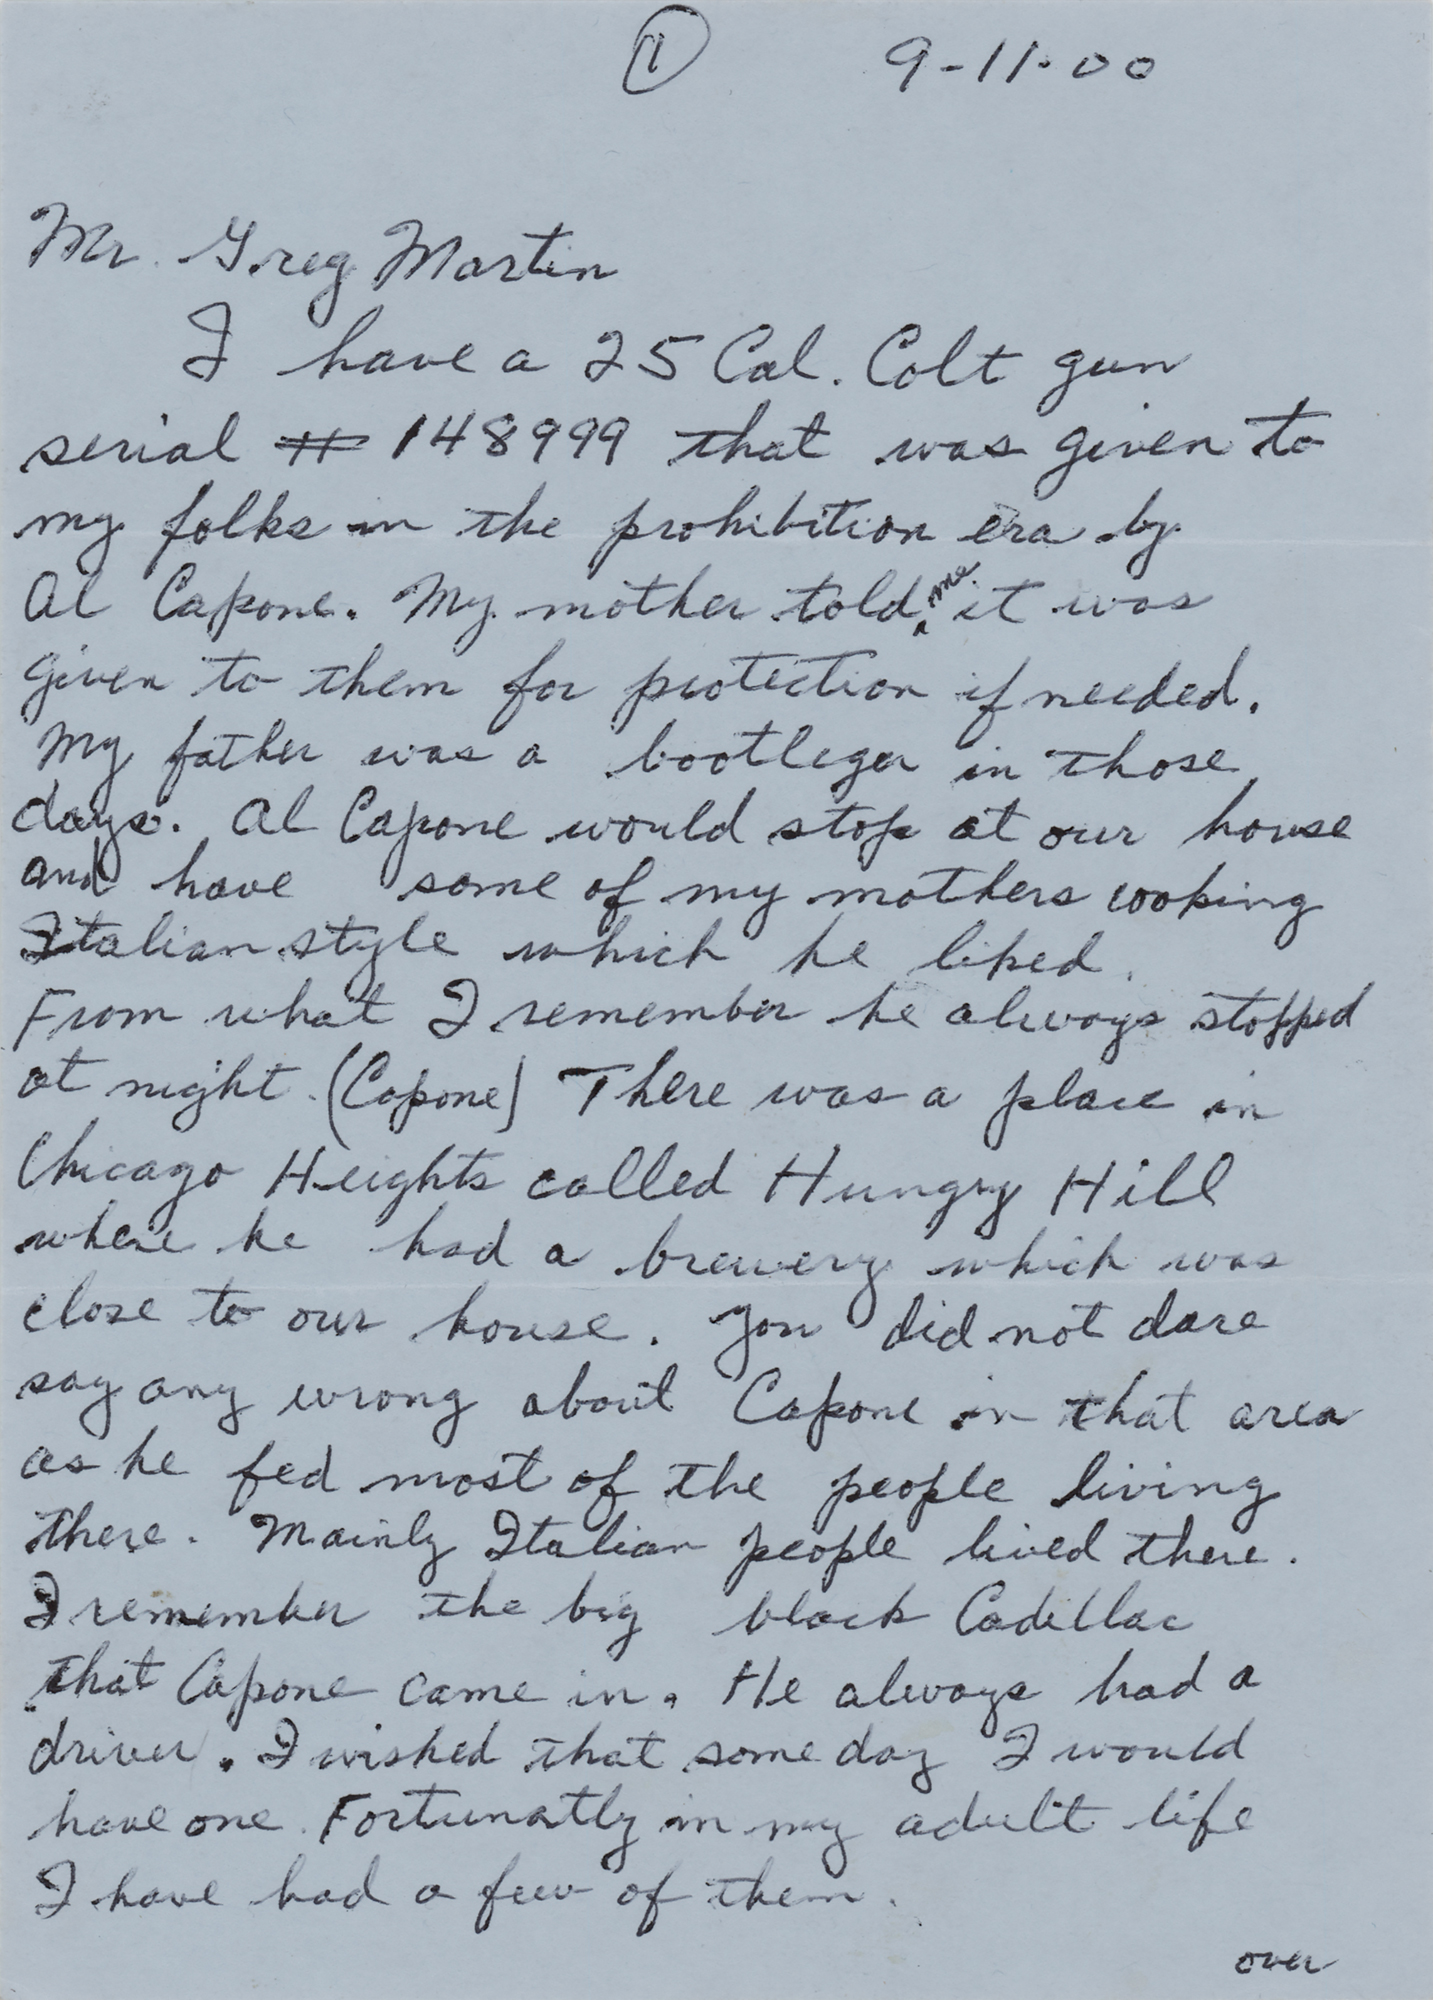 1 9-11-00
Mr. Greg Martin
I have a 25 Cal. Colt gun
serial # 148999 that was given to
my folks in the prohibition era by
Al Capone. My mother told me it was
given to them for protection if needed.
My father was a bootleger in those
days. Al Capone would stop at our house
and have some of my mothers cooking
Italian style which he liked.
From what I remember he always stopped
at night. (Capone) There was a place in
Chicago Heights called Hungry Hill
where he had a brewery which was
close to our house. You did not dare
say any wrong about Capone in that area
as he fed most of the people living
there. Mainly Italian people lived there.
I remember the big black Cadillac
that Capone came in. He always had a
driver. I wished that some day I would
have one. Fortunatly in my adult life
I have had a few of them.
over